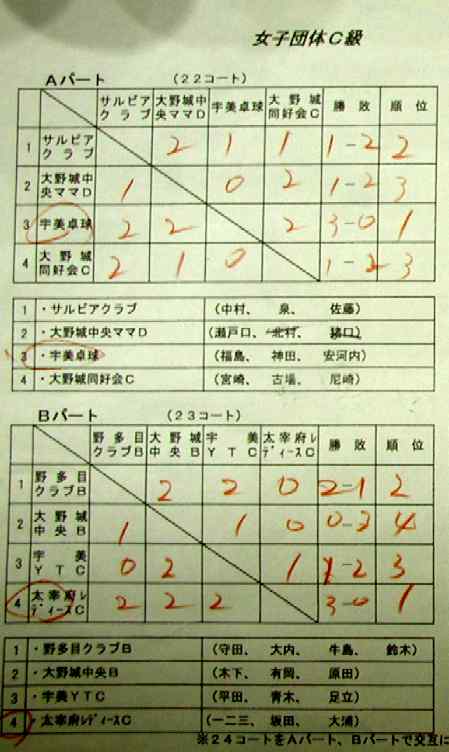 女子団体C級
Aパート (22コート)
サルビアクラブ 大野城中央ママD 宇美卓球 大野城同好会C 勝敗 順位
1 サルビアクラブ 2 1 1 1-2 2
2 大野城中央ママD 1 0 2 1-2 3
3 宇美卓球 2 2 2 3-0 1
4 大野城同好会C 2 1 0 1-2 3
1 ・サルビアクラブ (中村、 泉、 佐藤)
2 ・大野城中央ママD (瀬戸口、 北村、 猪口)
3 ・宇美卓球 (福島、 神田、 安河内)
4 ・大野城同好会C (宮崎、 古場、 尼崎)
Bパート (23コート)
野多目クラブB 大野城中央B 宇美YTC 太宰府レディースC 勝敗 順位
1 野多目クラブB 2 2 0 2-1 2
2 大野城中央B 1 1 0 0-3 4
3 宇美YTC 0 2 1 1-2 3
4 太宰府レディースC 2 2 2 3-0 1
1 ・野多目クラブB (守田、 大内、 牛島、 鈴木)
2 ・大野城中央B (木下、 有岡、 原田)
3 ・宇美YTC (平田、 青木、 足立)
4 ・太宰府レディースC (一二三、 坂田、 大浦)
※24コートをAパート、Bパートで交互に